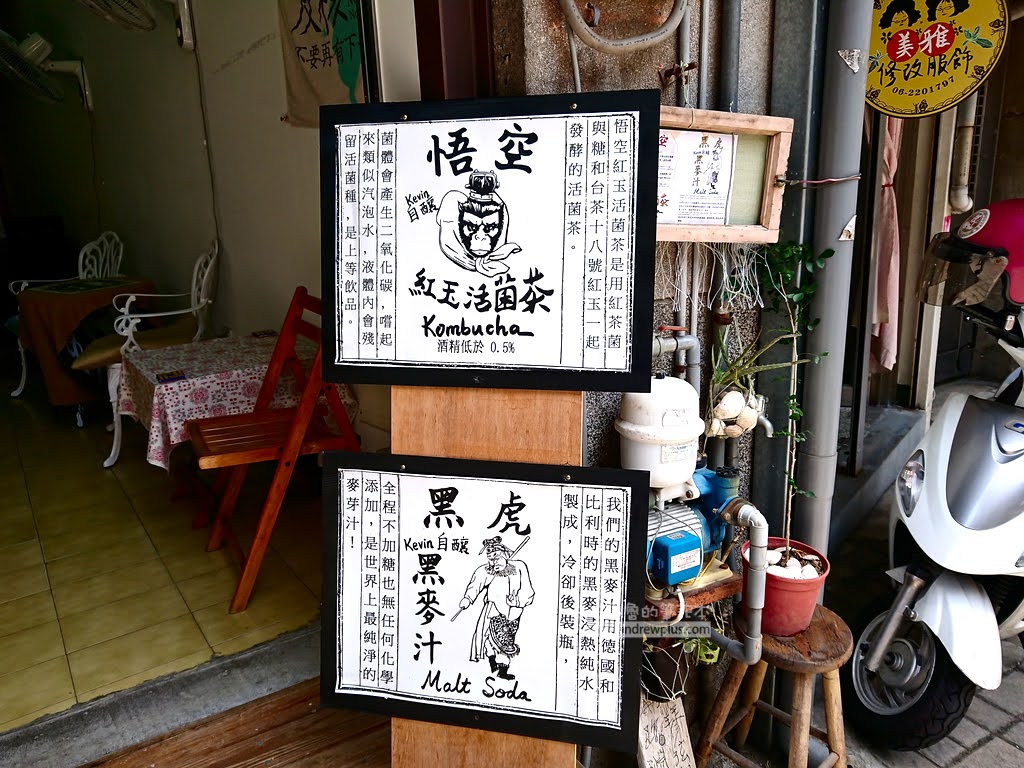 不要再有下
悟空紅玉活菌茶是用紅茶菌
與糖和台茶十八號紅玉一起
發酵的活菌茶。
悟空
Kevin
自釀
紅玉活菌茶
Kombucha
酒精低於 0.5%
菌體會產生二氧化碳,嚐起
來類似汽泡水,液體內會殘
留活菌種,是上等飲品。
我們的黑麥汁用德國和
比利時的黑麥浸熱純水
製成,冷卻後裝瓶,
黑虎
Kevin 自釀
黑麥汁
Malt Soda
全程不加糖也無任何化學
添加,是世界上最純淨的
麥芽汁!
黑虎
黑麥汁
Malt Soda
美雅
修改服飾
06-2201797
andrewplus.com